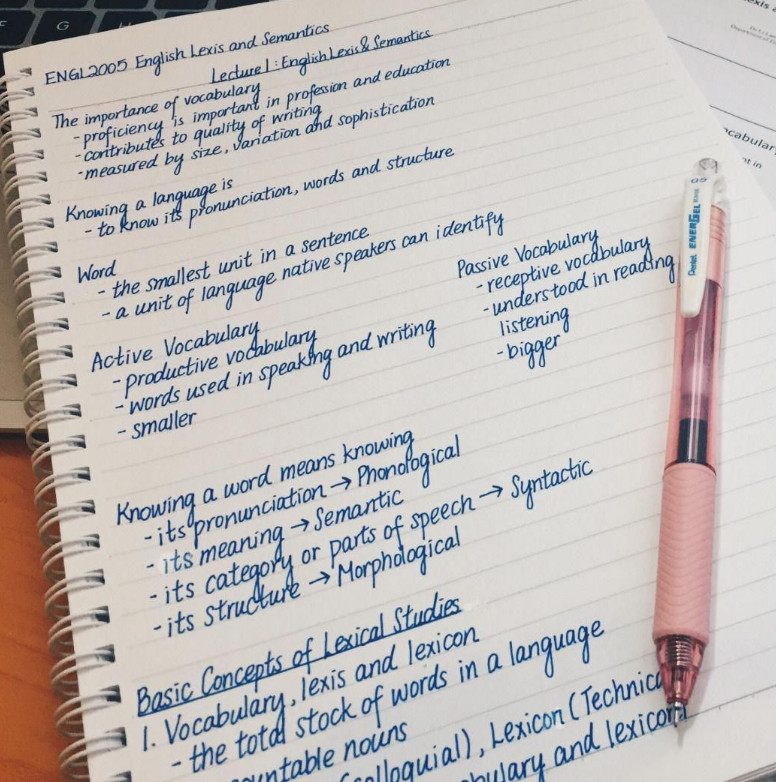 ENGL2005 English Lexis and Semantics
Lecture 1: English Lexis & Semantics
The importance of vocabulary
- proficiency is important in profession and education
- contributes to quality of writing
- measured by size, variation and sophistication
Knowing a language is
- to know its pronunciation, words and structure
Word
- the smallest unit in a sentence
- a unit of language native speakers can identify
Active Vocabulary
- productive vocabulary
- words used in speaking and writing
- smaller
Passive Vocabulary
- receptive vocabulary
- understood in reading
listening
- bigger
Knowing a word means knowing
- its pronunciation → Phonological
- its meaning → Semantic
- its category or parts of speech → Syntactic
- its structure → Morphological
Basic Concepts of Lexical Studies
1. Vocabulary, lexis and lexicon
- the total stock of words in a language
nouns
Lexicon (
and lexicon
Pentel ENERGEL
0.5
G